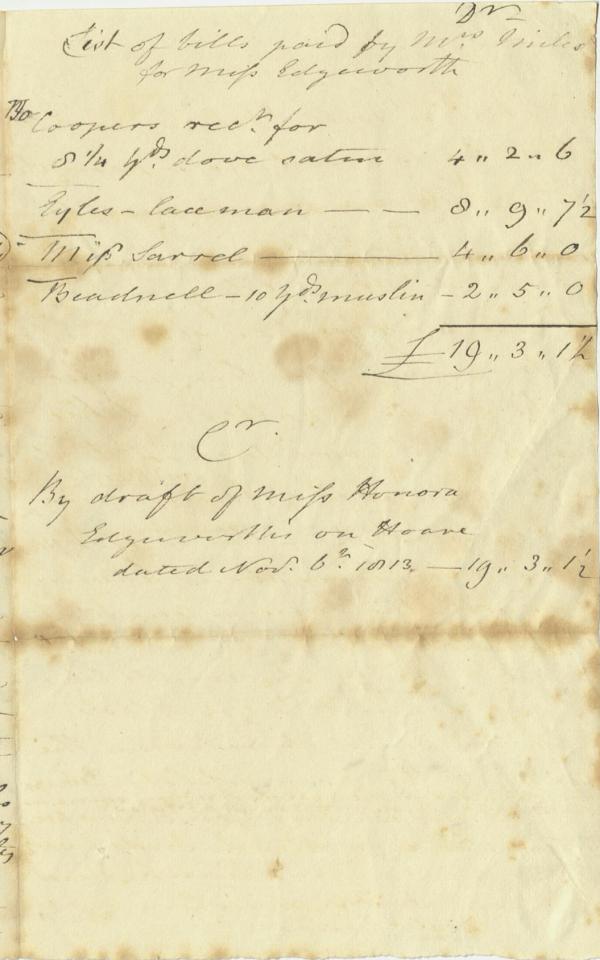 Dr
List of bills paid by Mrs
for Miss Edgeworth
To Coopers rect. for
8 1/4 yds. dove satin 4 ,, 2 ,, 6
Eyles - laceman — — 8 ,, 9 ,, 7 1/2
Miss Sarrel — 4 ,, 6 ,, 0
Beadnell - 10 yds muslin - 2 ,, 5 ,, 0
£ 19 ,, 3 ,, 1 1/2
Cr.
By draft of Miss Honora
Edgeworths on Hoare
dated Nov. 6th. 1813. — 19 ,, 3 ,, 1 1/2